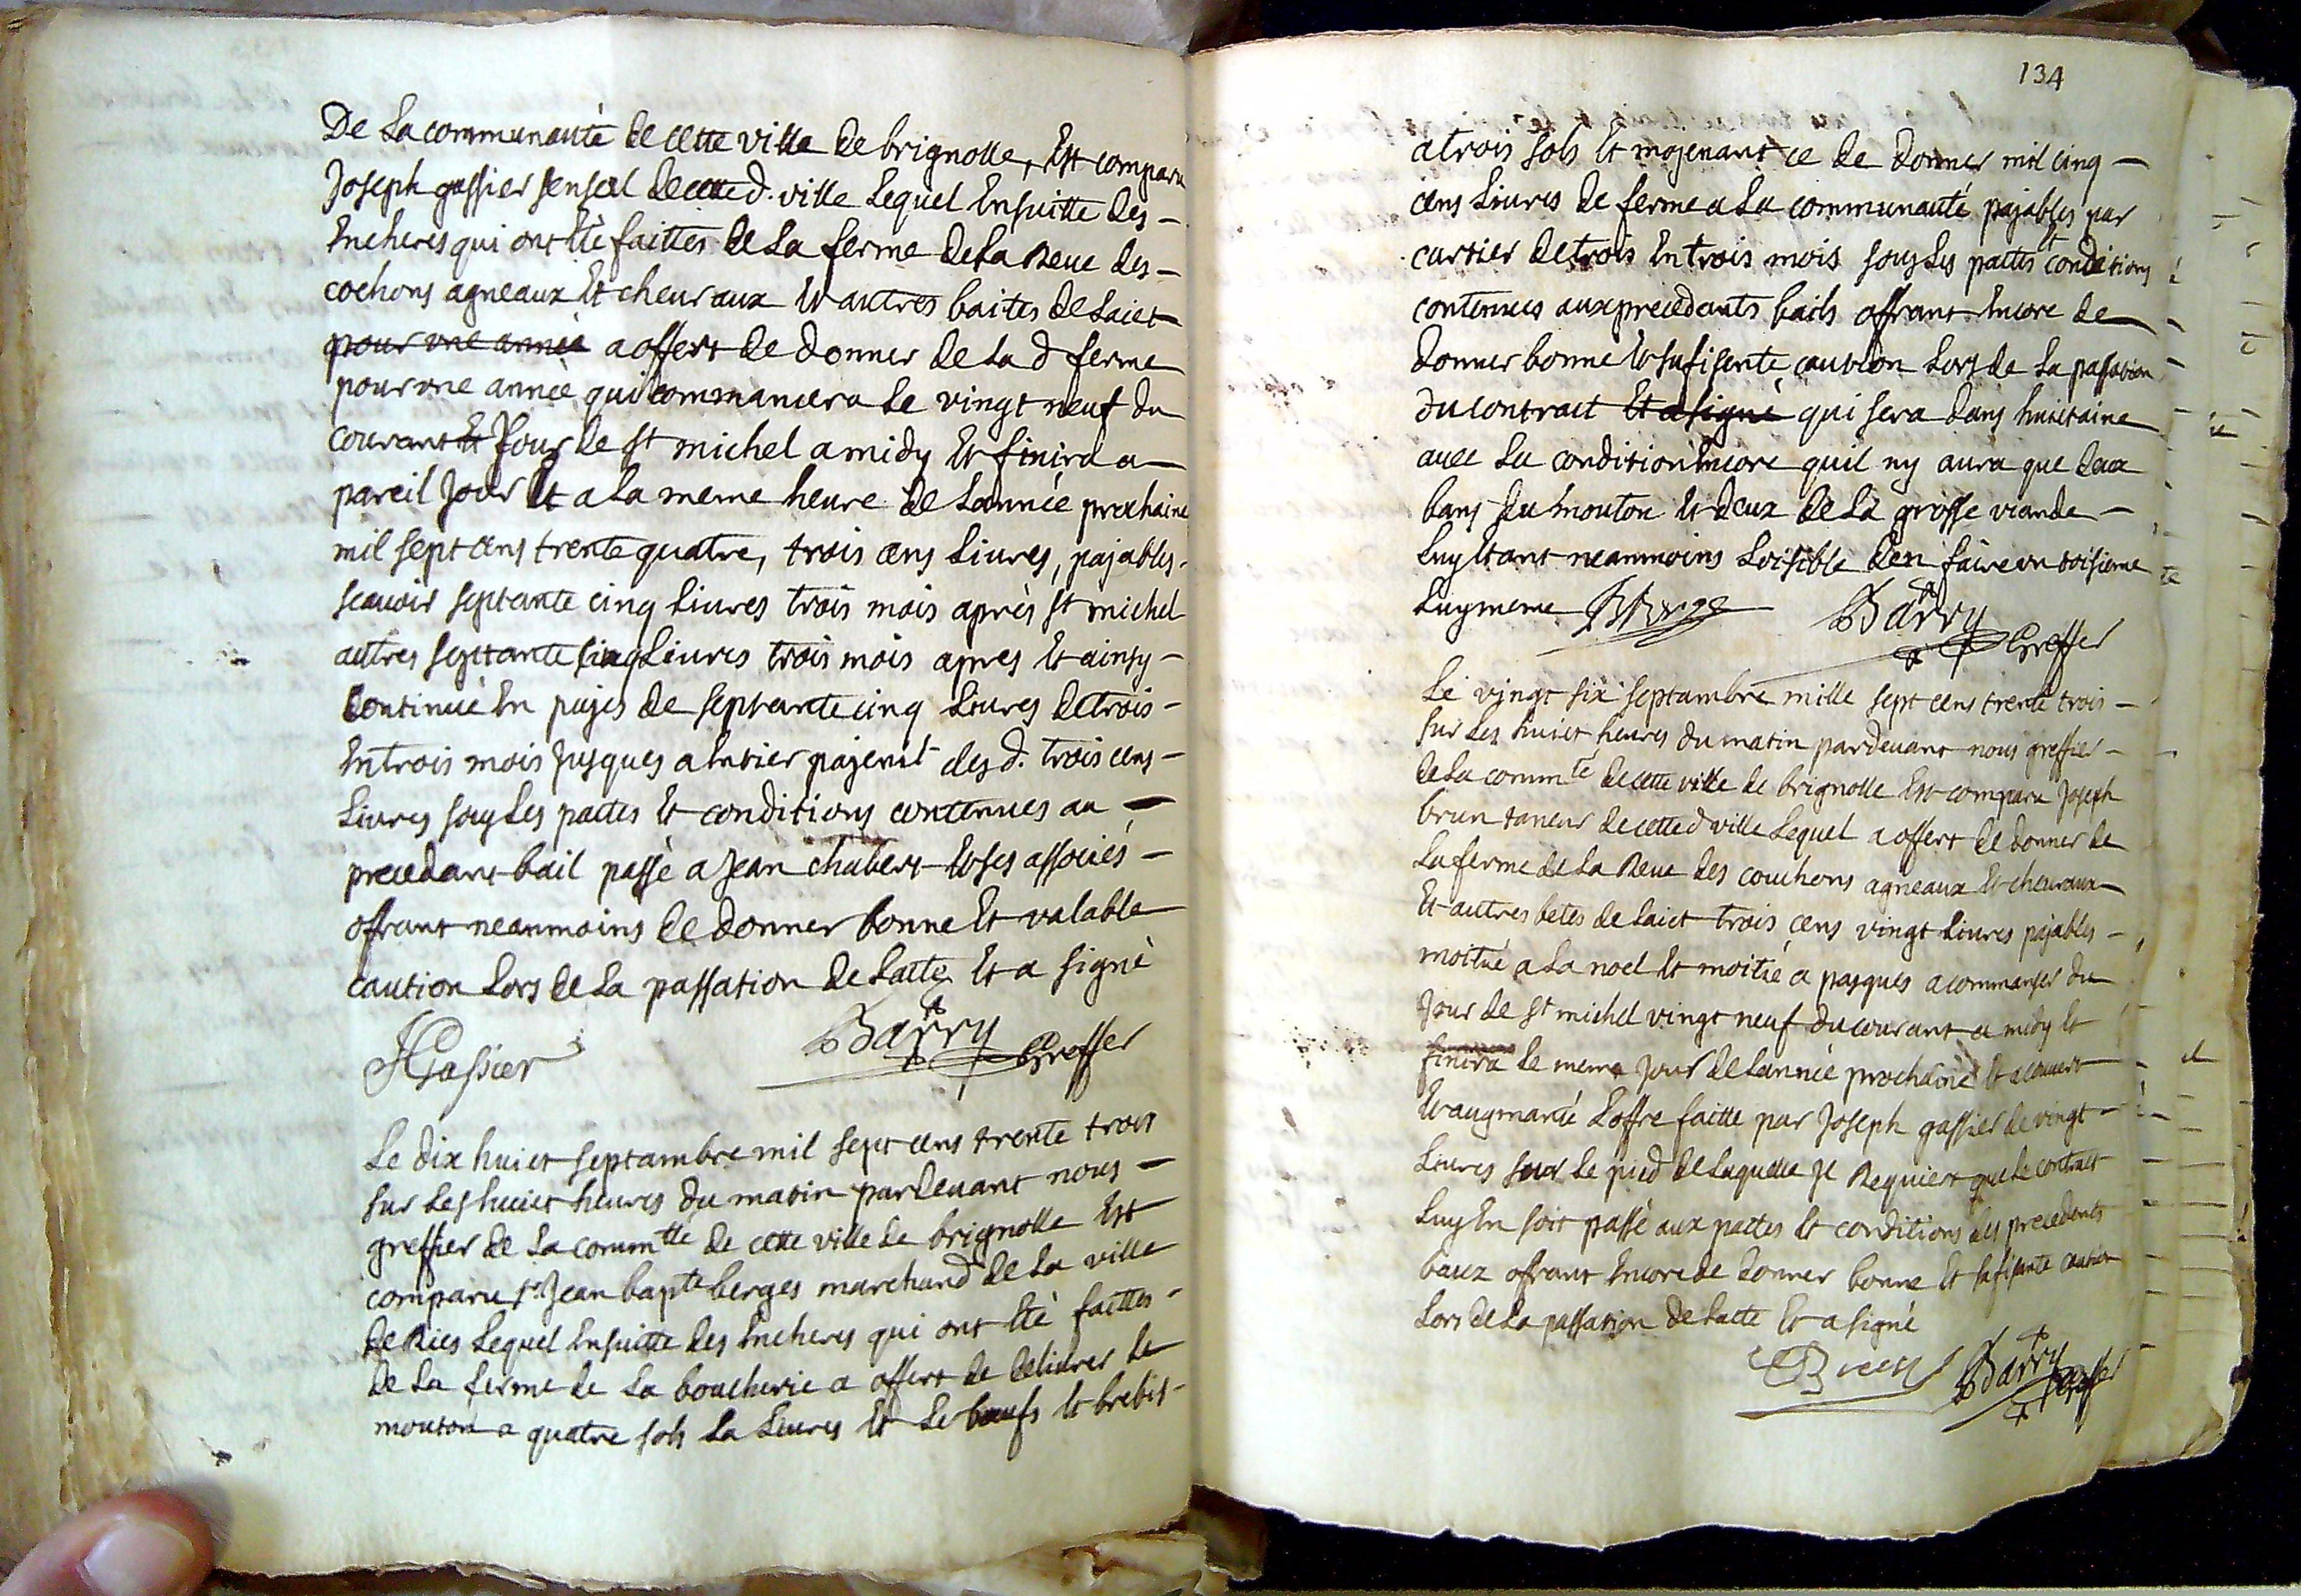 De La communauté de cette ville de brignolle, Est comparu
Joseph gassier sensal de cette d. ville Lequel Ensuitte des
Encheres qui ont Eté faittes de La ferme de La Reue des
cochons agneaux Et cheuraux Et autres baites de Laict
pour vne année a offert de donner de La d ferme
pour vne année qui commancera Le vingt neuf du
courant Et Jour de St michel a midy Et finira a
pareil Jour Et a La meme heure de Lannée prochaine
mil sept cens trente quatre, trois cens Liures, pajables
scauoir septante cinq Liures trois mois après St michel
autres septante cinq Liures trois mois apres Et ainsy
continué En pajes de septante cinq Liures de trois
En trois mois Jusques a Entier pajemt des d. trois cens
Liures sous Les pattes Et conditions contenues au
precedant bail passé a Jean chabert Et ses associés
offrant neanmoins de donner bonne Et valable
caution Lors de La passation de Latte Et a signé
JGassier Barry Greffier
Le dix huict septambre mil sept cens trente trois
sur Les huict heures du matin pardeuant nous
greffier de La commtté de cette ville de brignolle Est
comparu sr Jean bapte berges marchand de La ville
de Ries Lequel Ensuitte des Encheres qui ont Eté faittes
de La ferme de La boucherie a offert de deliurer Le
mouton a quatre sols La Liures Et Le bœufs Et brebis
134
a trois sols Et mojenant ce de donner mil cinq
cens Liures de ferme a La communauté pajables par
cartier de trois En trois mois sous Les pattes Et conditions
contenues aux precedants bails offrant Encore de
donner bonne Et sufisente caution Lors de La passation
du contract Et a signé qui sera dans huictaine
auec La condition Encore quil ny aura que deux
bans du mouton Et deux de La grosse viande
Luy Etant neanmoins Loisible den faire un troisieme
Luymeme Barry Greffier
Le vingt six septambre mille sept cens trente trois
sur Les huict heures du matin pardeuant nous greffier
de La commté de cette ville de brignolle Est comparu Joseph
brun taneur de cette d ville Lequel a offert de donner de
La ferme de La Reue des couchons agneaux Et cheuraux
Et autres betes de Laict trois cens vingt Liures pajables
moitié a La noel Et moitié a pasques a commanser du
Jour de St michel vingt neuf du courant a midy Et
finira Le meme Jour de Lannée prochaine Et a couuert
Et augmanté Loffre faitte par Joseph gassier de vingt
Liures sur Le pied de Laquelle Il Requiert que Le contract
Luy En soit passé aux pattes Et conditions des precedents
baux offrant Encore de donner bonne Et sufisante caution
Lors de La passation de Latte Et a signé
Barry Greffier